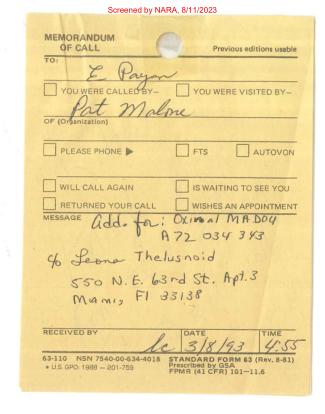 Screened by NARA, 8/11/2023
MEMORANDUM
OF CALL
Previous editions usable
TO:
E Payan
YOU WERE CALLED BY—
YOU WERE VISITED BY—
Pat Malone
OF (Organization)
PLEASE PHONE ▶
FTS
AUTOVON
WILL CALL AGAIN
IS WAITING TO SEE YOU
RETURNED YOUR CALL
WISHES AN APPOINTMENT
MESSAGE
Add. for: MADOU
A72 034 343
c/o Leone Thelusnoid
550 N.E. 63rd St. Apt. 3
Miami, Fl 33138
RECEIVED BY
DATE
TIME
lc
3/8/93
4:55
63-110 NSN 7540-00-634-4018
STANDARD FORM 63 (Rev. 8-81)
Prescribed by GSA
FPMR (41 CFR) 101—11.6
* U.S. GPO: 1988 — 201-759